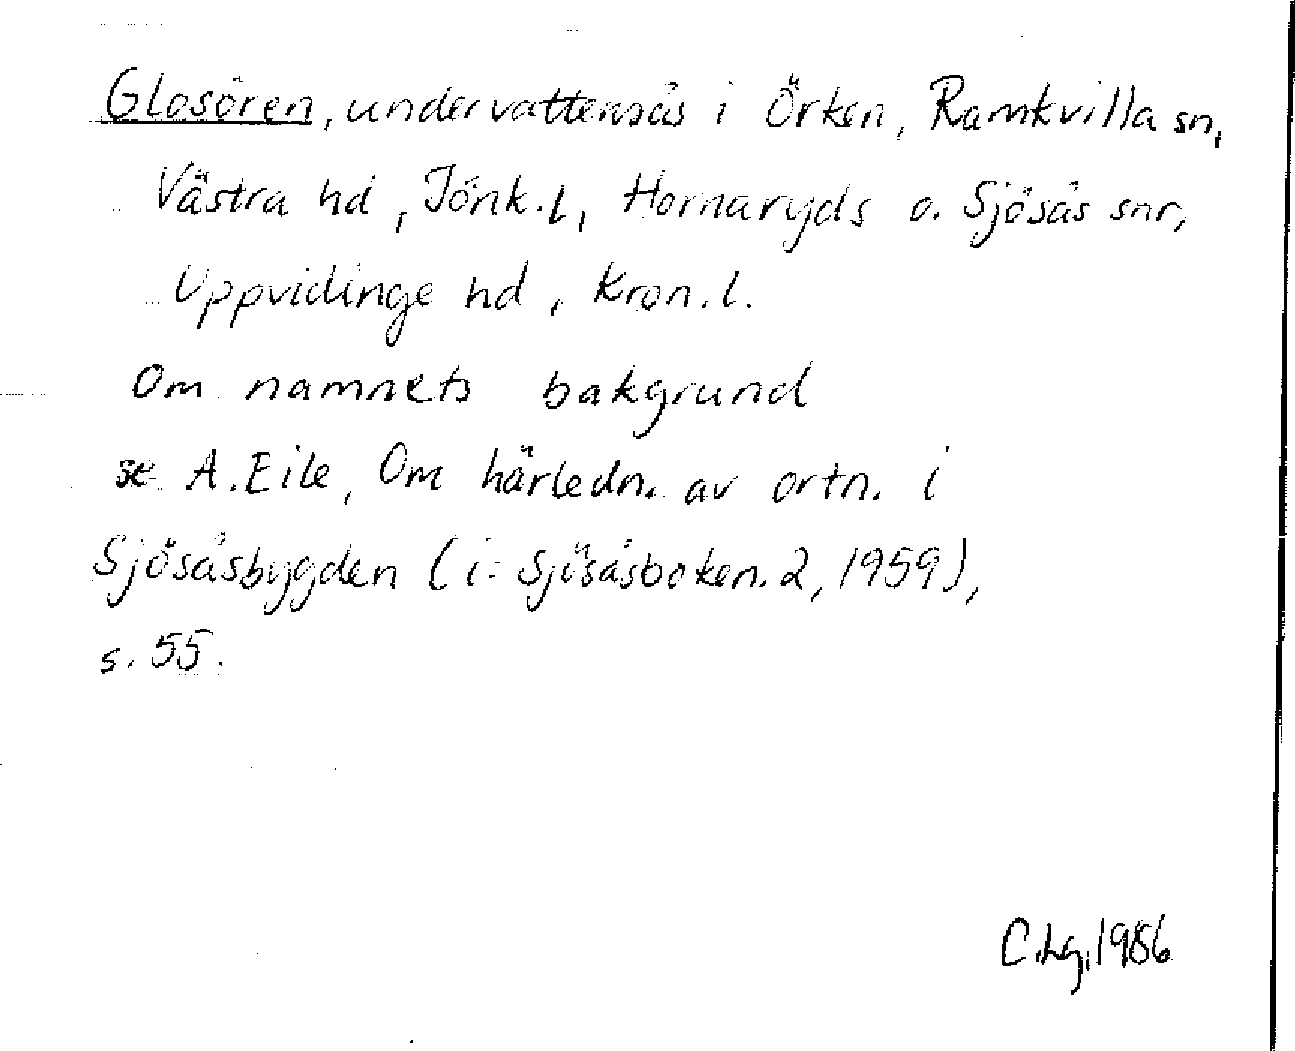 Glosören, undervattensås i Örken, Ramkvilla sn,
Västra hd, Jönk. l, Hornaryds o. Sjösås snr,
Uppvidinge hd, Kron. l.
Om namnets bakgrund
se A. Eile, Om härledn. av ortn. i
Sjösåsbygden (i: Sjösåsboken. 2, 1959),
s. 55.
C.Lg, 1986